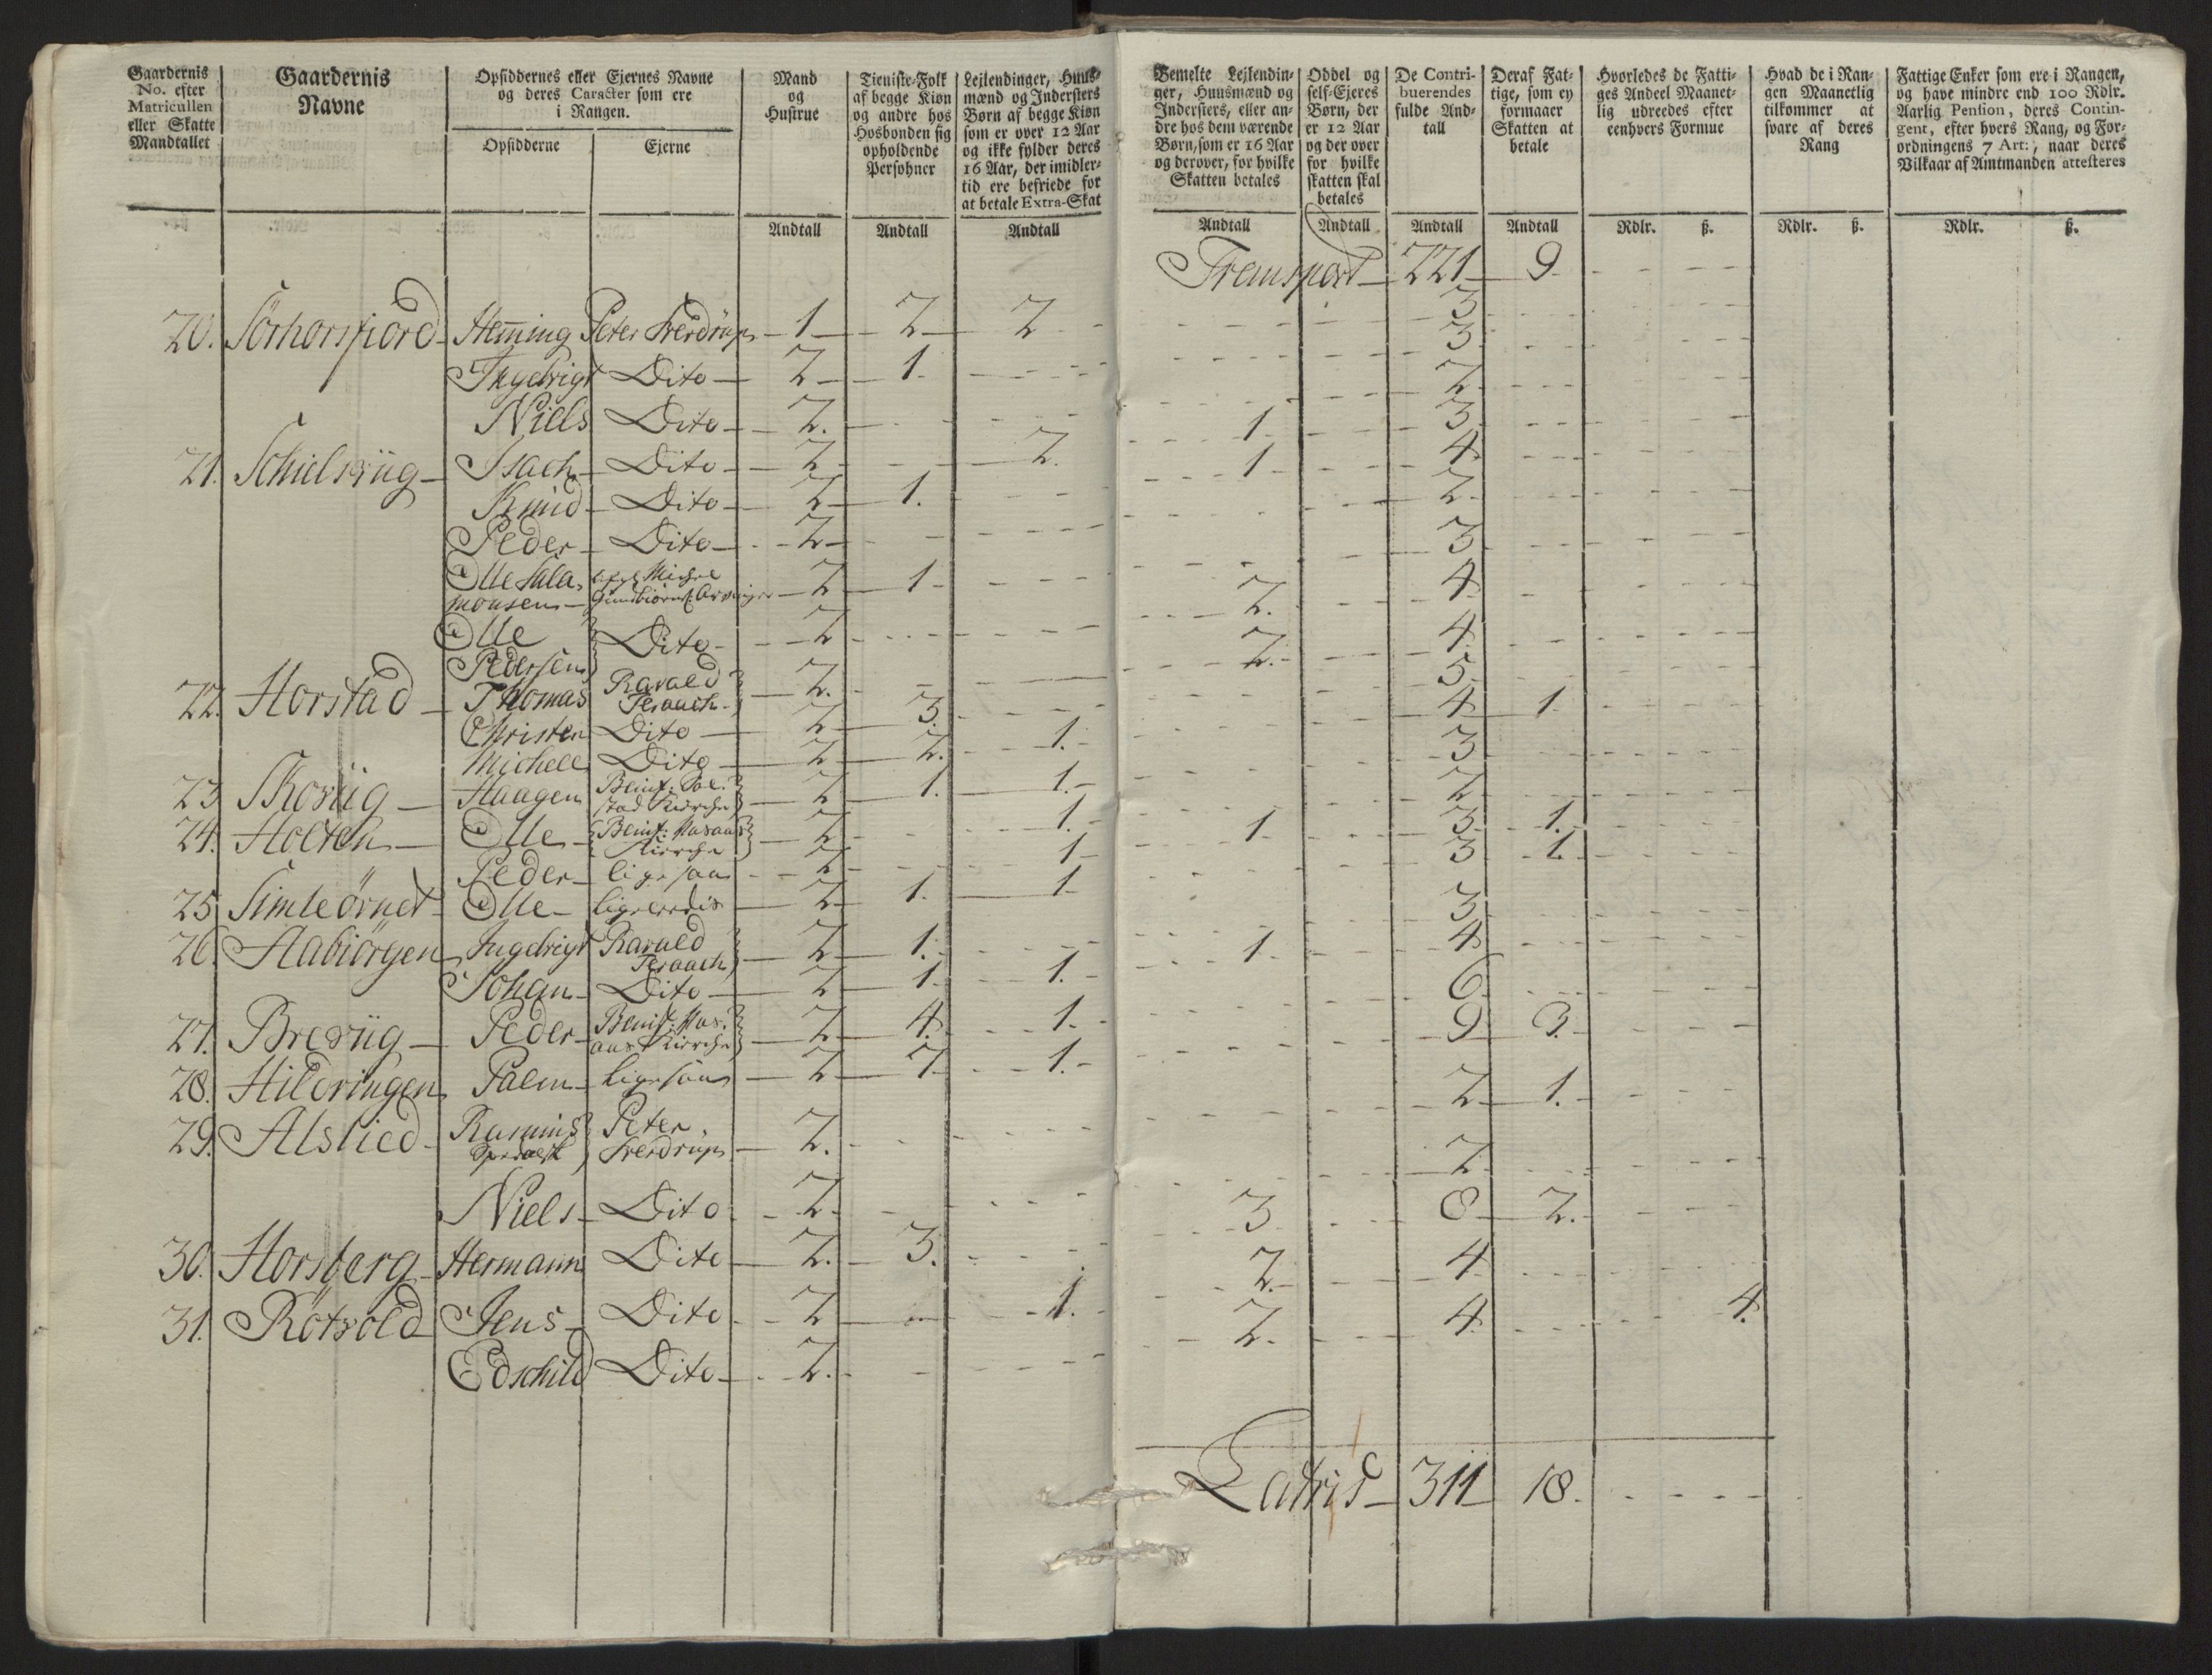 Gaardernis No. efter Matricullen eller Skatte Mandtallet
Gaardernis Navne
Opsiddernes eller Ejernes Navne og deres Caracter som ere i Rangen.
Opsidderne
Ejerne
Mand og Hustrue
Tieniste-Folk af begge Kiøn og andre hos Hosbonden sig opholdende Persohner
Lejlendinger, Huus-mænd og Indersters Børn af begge Kiøn som er over 12 Aar og ikke fylder deres 16 Aar, der imidlertid ere befriede for at betale Extra-Skat
Andtall Andtall Andtall
20. Sörhorsfiord Hem̅ing Peter Sverdrup 1 2 2
Ingebrigt Dito 2 1.
Niels Dito 2.
21. Schielsviig Isach Dito 2 2.
Knud Dito 2 1.
Peder Dito 2
Olle Salamonsen Michel Arvinger 2 1
Olle Pedersen Dito 2
22. Horstad Thomas Ravald 2.
Christen Dito 2 3.
Michell Dito 2 2. 1.
23 Skoviig Haagen Benif: Sol:stad Kirche 2 1. 1.
24. Holten Olle Benif: Kirche 2 1.
Peder ligesaa 2 1
25 Simleörnet Olle 2 1. 1
26 Aabiörgen Ingebrigt Ravald 2 1.
Johan Dito 2 1 1.
27. Breviig Peder Benif: Kirche 2 4. 1.
28. Hildringen Palm ligesaa 2 7 1.
29. Alslied Rasmus Peter Sverdrup 2.
Niels Dito 2
30. Horsberg Hermann Dito 2. 3.
31. Rötvold Jens Dito 2 1.
Edschild Dito 2.
Bemelte Lejlendinger, Huusmænd og Indersters, eller andre hos dem værende Børn, som er 16 Aar og derover, for hvilke Skatten betales
Oddel og self-Ejeres Børn, der er 12 Aar og der over for hvilke skatten skal betales
De Contribuerendes fulde Andtall
Deraf Fattige, som ey formaaer Skatten at betale
Hvorledes de Fattiges Andeel Maanetlig udreedes efter eenhvers Formue
Hvad de i Rangen Maanetlig tilkommer at svare af deres Rang
Fattige Enker som ere i Rangen, og have mindre end 100 Rdlr. Aarlig Pension, deres Contingent, efter hvers Rang, og Forordningens 7 Art:, naar deres Vilkaar af Amtmanden attesteres
Andtall Andtall Andtall Andtall Rdlr. ß. Rdlr. ß. Rdlr. ß.
Transport 221 9
3
3
2
1 3
1 4
2
3
2. 4
2. 4
5
4 1
3
2
1 3 1.
3 1.
3
1 4
6
9 3.
2 1.
2
3 8 2.
2 4
2. 4 4.
Latus 311 18.